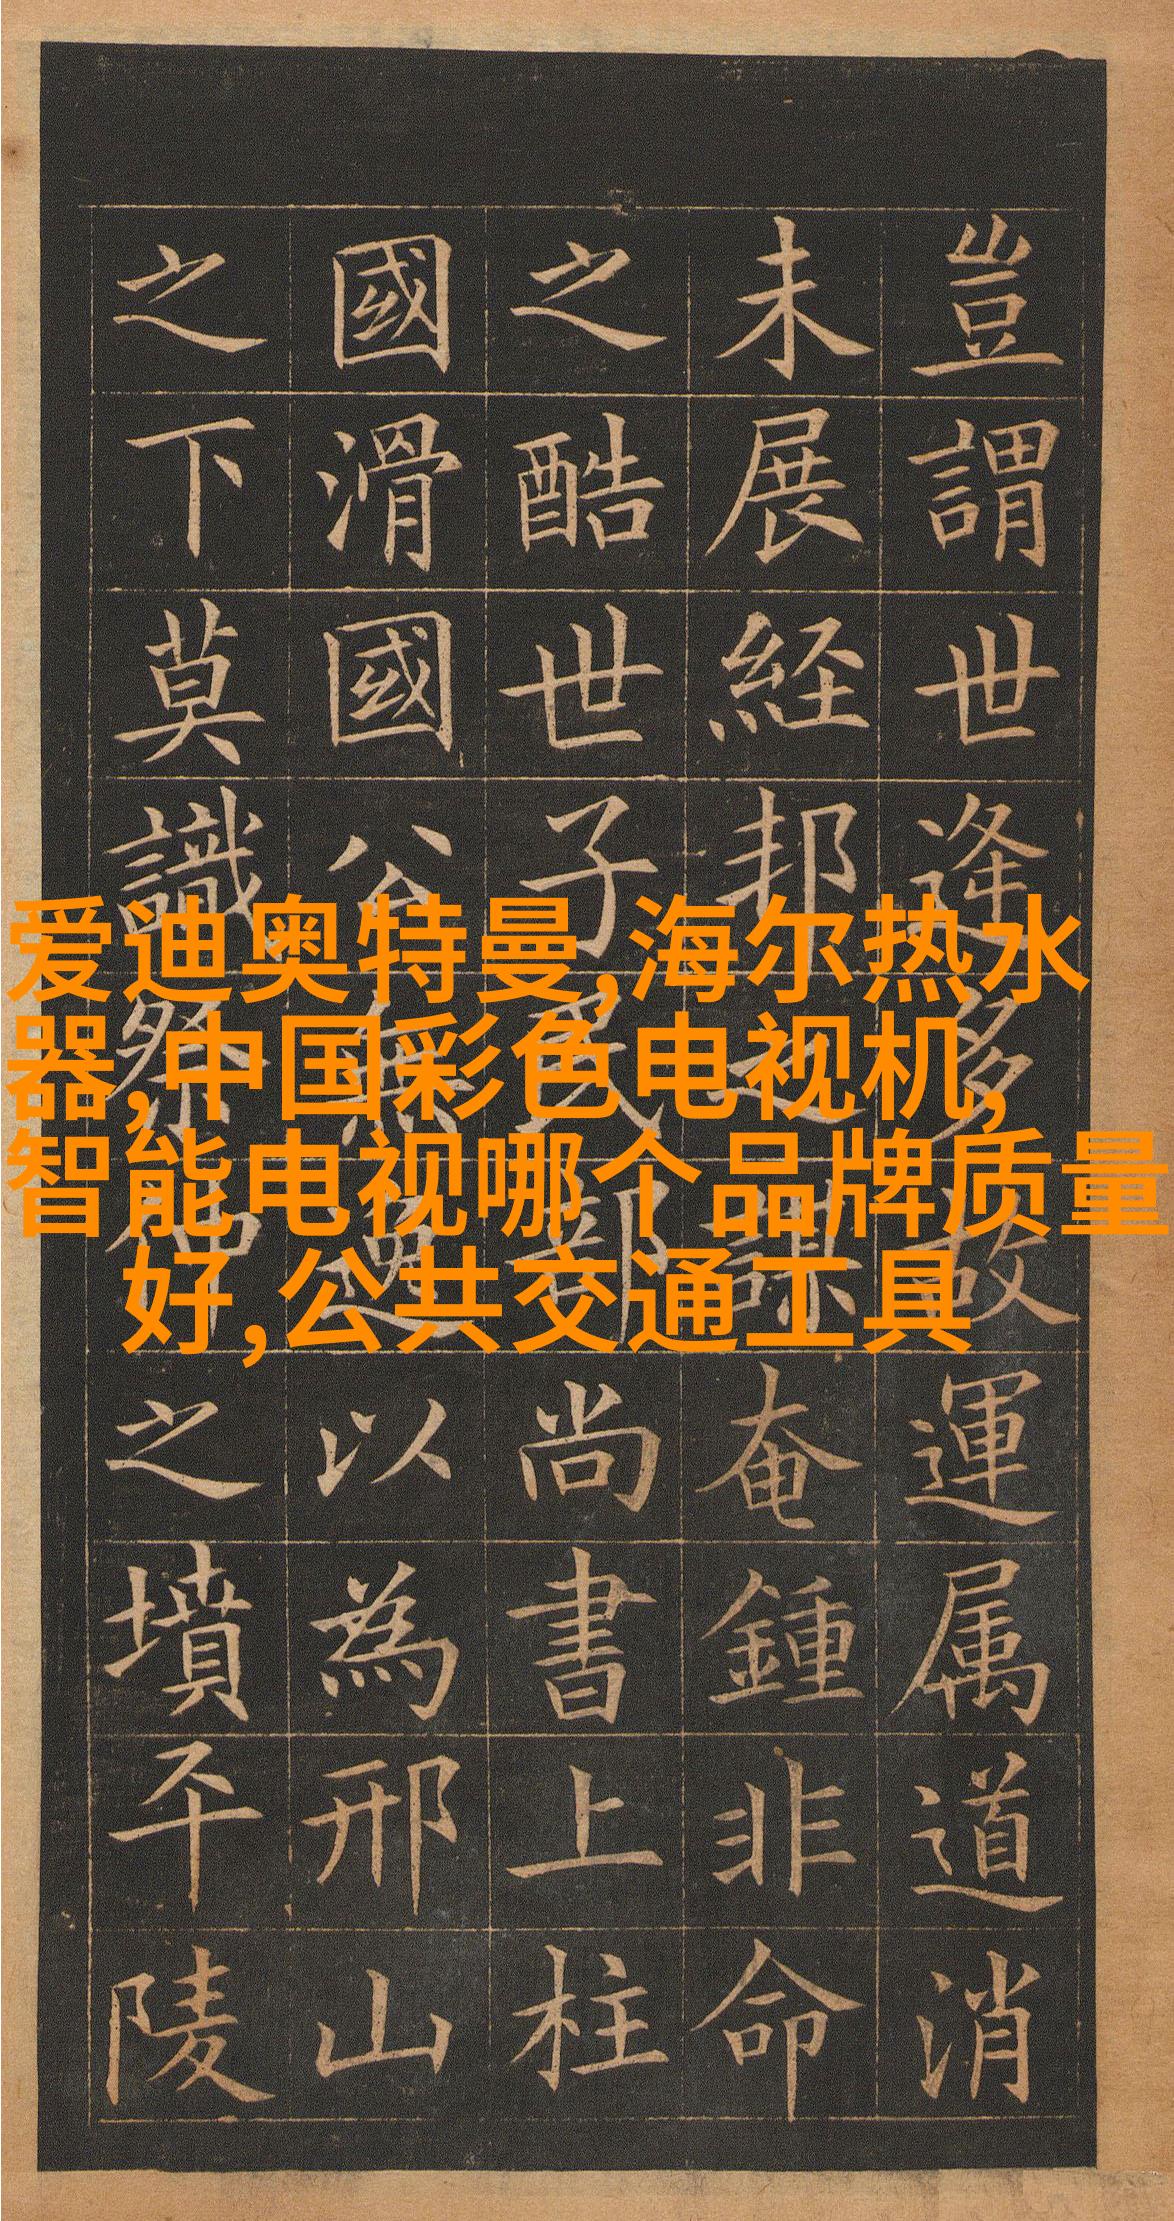 豈謂世逢多故運属道消
未展経邦之謀奄鍾非命
之酷世子民部尚書上柱
國滑國公無逸以為邢山
之下莫識祭仲之墳平陵
爱迪奥特曼,海尔热水
器,中国彩色电视机,
智能电视哪个品牌质量
好,公共交通工具